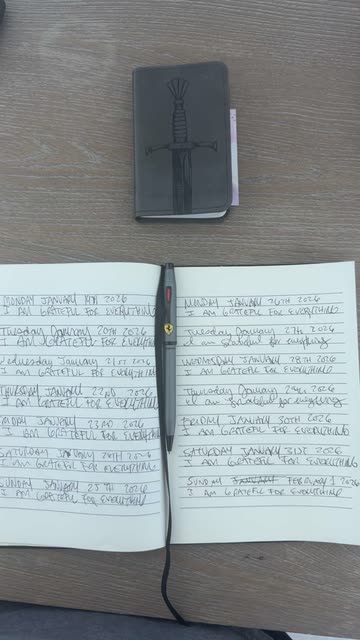 MONDAY JANUARY 19TH 2026
I AM GRATEFUL FOR EVERYTHING
Tuesday January 20TH 2026
I AM GRATEFUL FOR EVERYTHING
Wednesday January 21ST 2026
I AM GRATEFUL FOR EVERYTHING
THURSDAY JANUARY 22ND 2026
I AM GRATEFUL FOR EVERYTHING
FRIDAY JANUARY 23RD 2026
I AM GRATEFUL FOR EVERYTHING
SATURDAY JANUARY 24TH 2026
I AM GRATEFUL FOR EVERYTHING
SUNDAY JANUARY 25TH 2026
I AM GRATEFUL FOR EVERYTHING
MONDAY JANUARY 26TH 2026
I AM GRATEFUL FOR EVERYTHING
Tuesday January 27th 2026
I am grateful for everything
WEDNESDAY JANUARY 28TH 2026
I AM GRATEFUL FOR EVERYTHING
Thursday January 2026
I am grateful for everything
FRIDAY JANUARY 30TH 2026
I AM GRATEFUL FOR EVERYTHING
SATURDAY JANUARY 31ST 2026
I AM GRATEFUL FOR EVERYTHING
SUNDAY JANUARY FEBRUARY 1 2026
I AM GRATEFUL FOR EVERYTHING